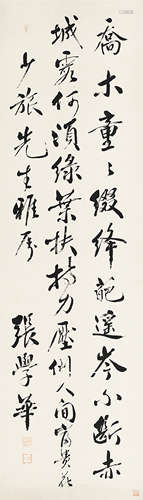 喬木童〻綴絳葩遙岑不斷赤
城霞何須綠葉扶持力壓倒人間富貴花
少旅先生雅屬 張學華